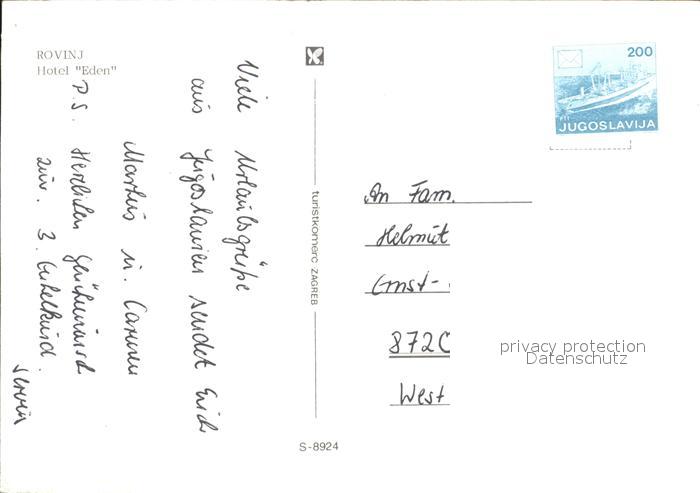 ROVINJ
Hotel "Eden"
Viele Urlaubsgrüße
aus Jugoslawien sendet Euch
Markus u. Carmen
P.S. Herzlichen Glückwunsch
zum 3. Enkelkind.
turistkomerc ZAGREB
S-8924
200
JUGOSLAVIJA
An Fam.
Helmut
Ernst-
872
West
privacy protection
Datenschutz